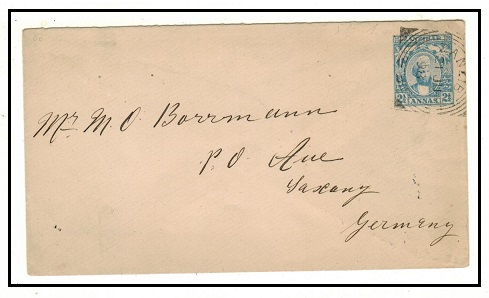 Mr M. O. Borrmann
P. O. Aue
Saxony
Germany
2½ ANNAS 2½